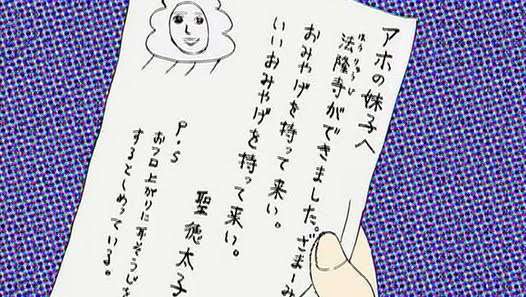 アホの妹子へ
法隆寺ができました。ざまーみ
ほうりゅうじ
おみやげを持って来い。
いいおみやげを持って来い。
聖徳太子
P.S
おフロ上がりに耳そうじを
するとしめっている。